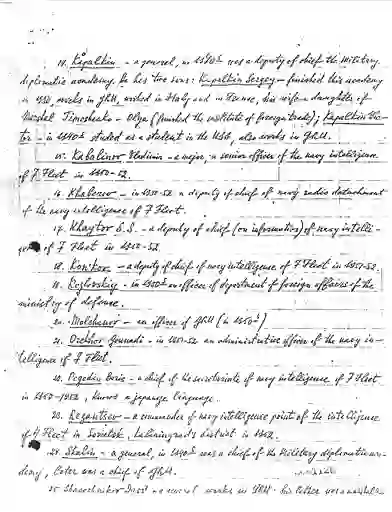 14. Kapalkin - a general, in 1940s was a deputy of chief the military
diplomatic academy. He has two sons: Kapalkin Sergey - finished this academy
in 1950, works in GRU, worked in Italy and in France, his wife a daughter of
Marshal Timoshenko - Olga (finished the institute of foreign trade); Kapalkin Vic-
tor - in 1940s studied as a student in the also works in GRU.
15. Kabalinov Vladimir - a major, a senior officer of the navy intelligence
of 7 Fleet in 1950-52.
16. - in 1950-52 a deputy of chief of navy radio detachment
of the navy intelligence of 7 Fleet.
17. Khaytov - a deputy of chief (on information) of navy intelli-
gence of 7 Fleet in 1950-52.
18. Kon'kov - a deputy of chief of navy intelligence of 7 Fleet in 1951-52.
19. Kozlovskiy - in 1950s an officer of department of foreign affairs of the
ministry of defense.
20. Molchanov - an officer of GRU (in 1950s)
21. Orekhov Gennadi - in 1951-52 an administrative officer of the navy in-
telligence of 7 Fleet.
22. Pogodin Boris - a chief of the secretariate of navy intelligence of 7 Fleet
in 1950-1952, knows a japanese language.
23. - a commander of navy intelligence point of the intelligence
of 4 Fleet in Kaliningrad's district in 1952.
24. Shalin - a general, in 1940s was a chief of the Military diplomatic aca-
demy, later was a chief of GRU.
25. a general works in GRU. his father was a